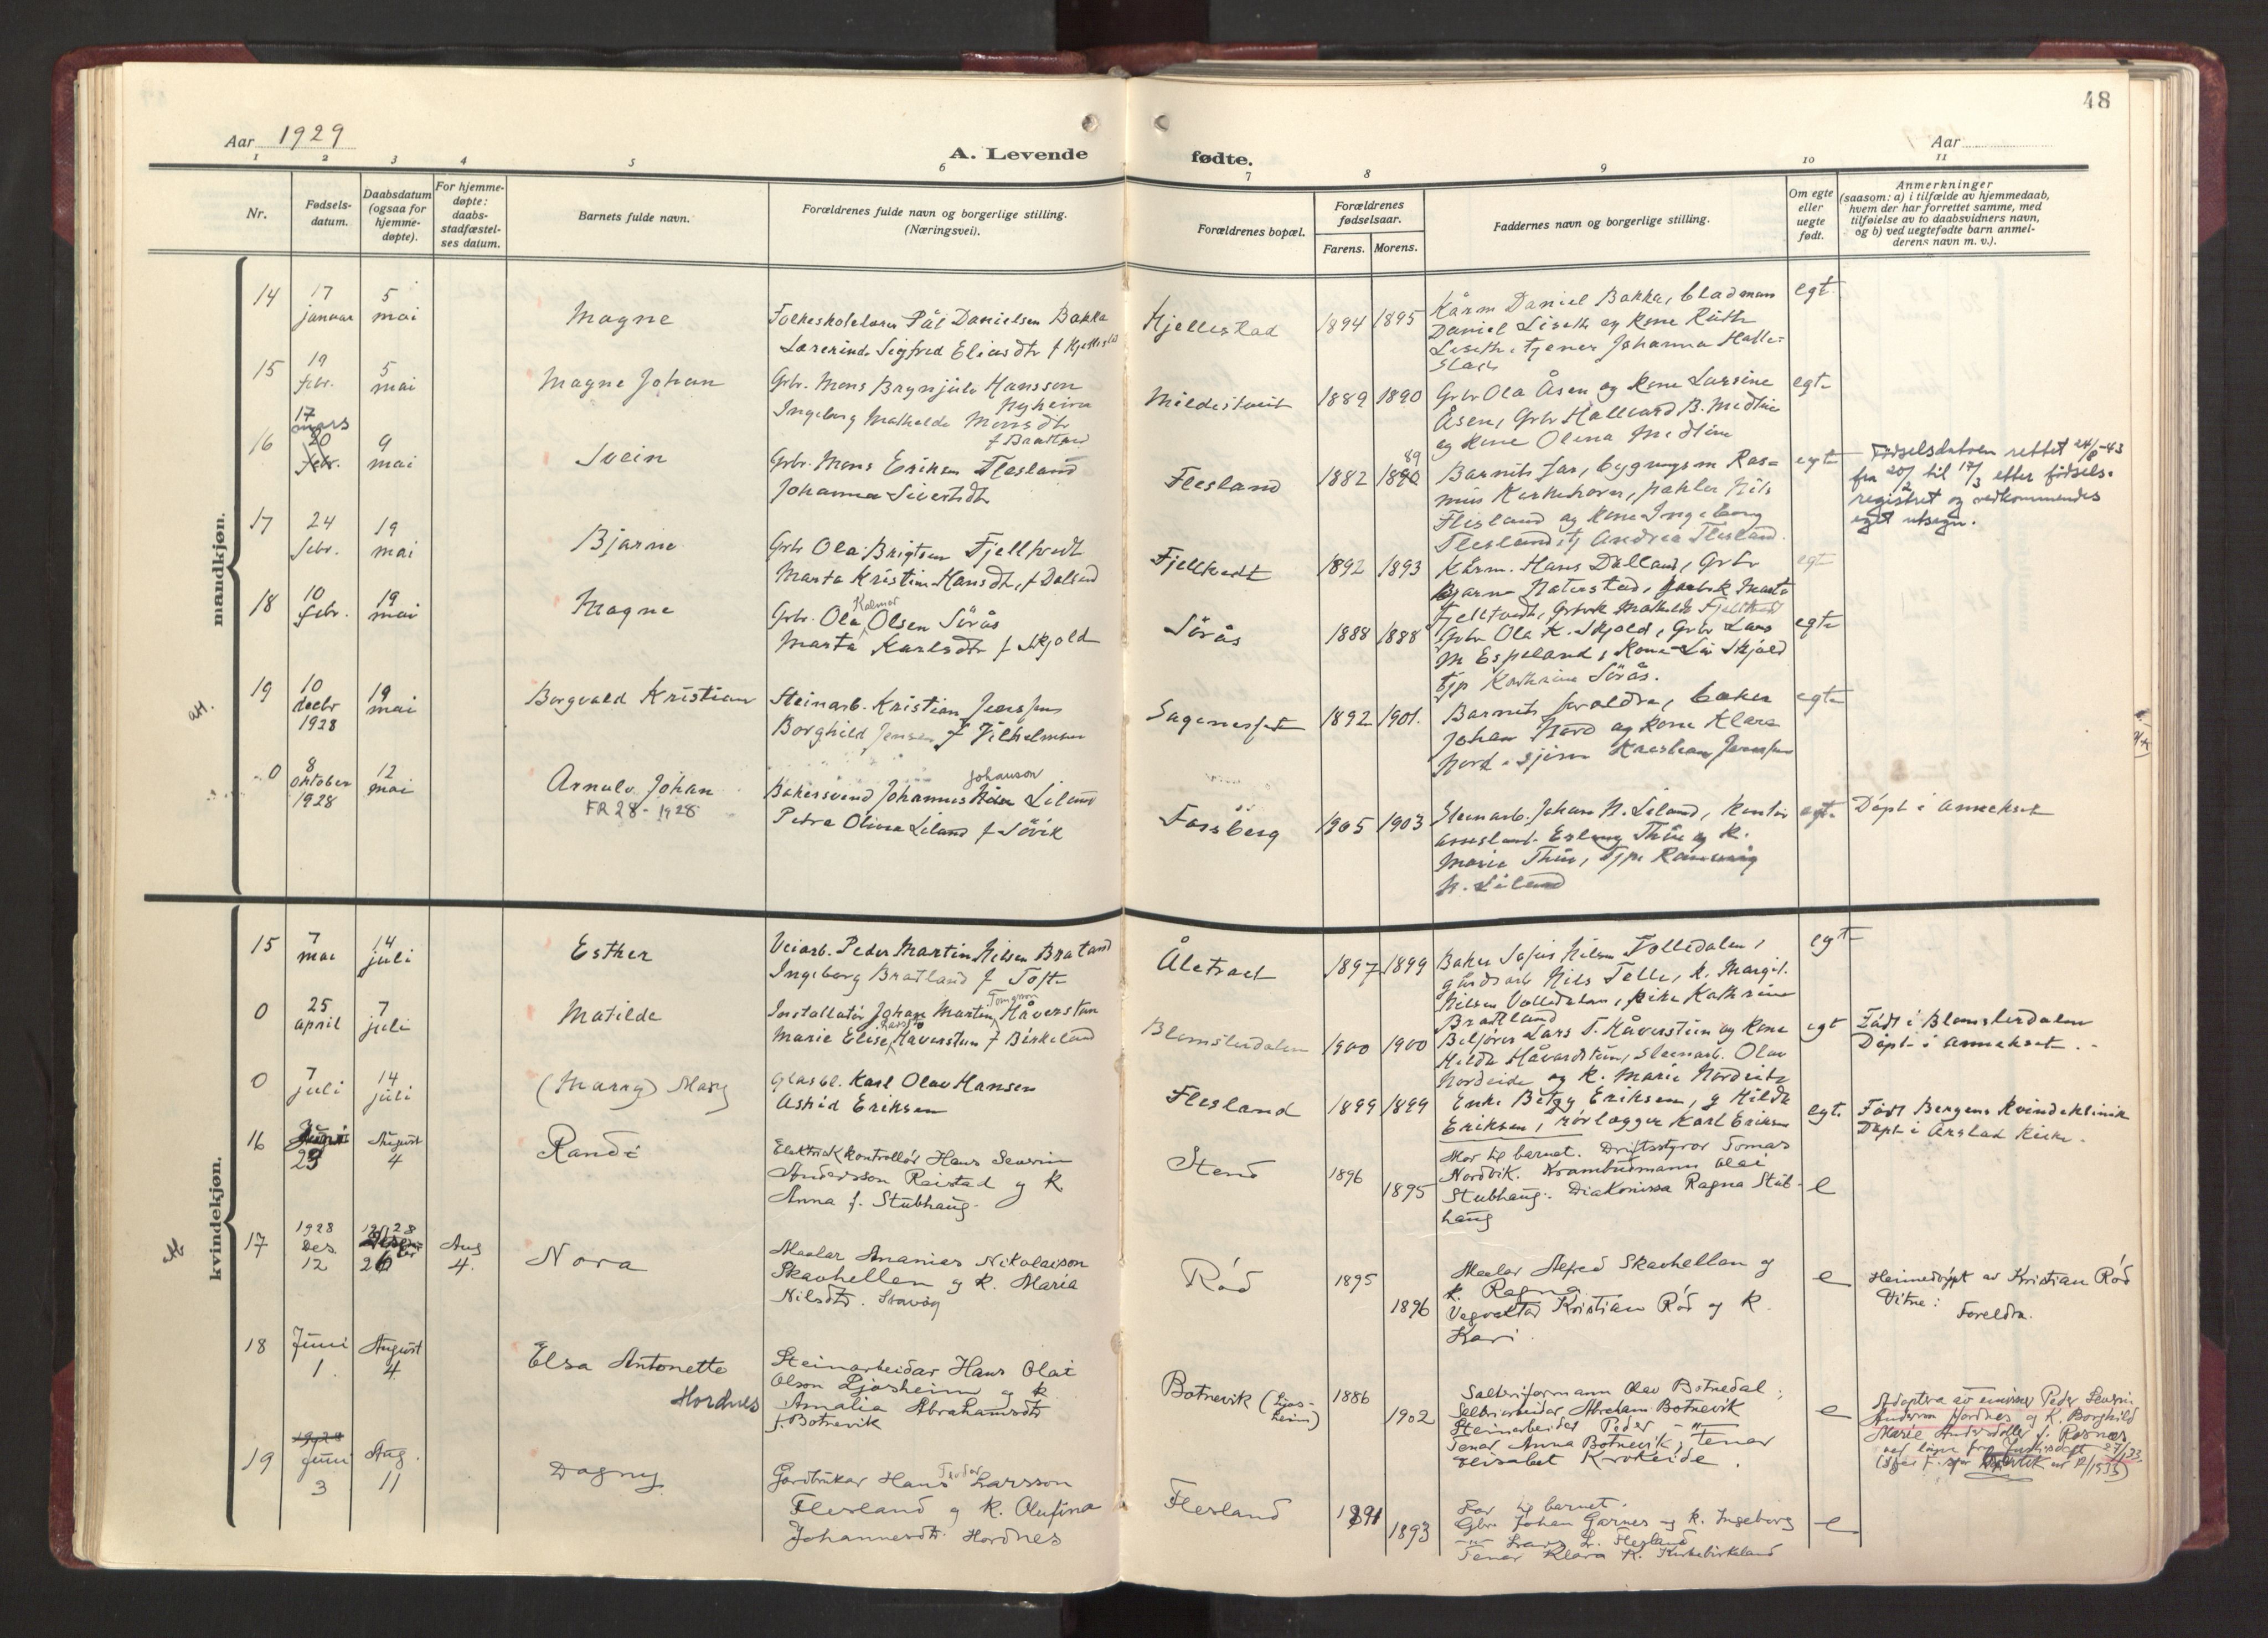 48
Aar 1929
A. Levende fødte.
Aar
1 2 3 4 5 6 7 8 9 10 11
Nr.
Fødsels-
datum.
Daabsdatum
(ogsaa for
hjemme-
døpte).
For hjemme-
døpte:
daabs-
stadfæstel-
ses datum.
Barnets fulde navn.
Forældrenes fulde navn og borgerlige stilling.
(Næringsvei).
Forældrenes bopæl.
Forældrenes
fødselsaar.
Farens. Morens.
Faddernes navn og borgerlige stilling.
Om egte
eller
uegte
født.
Anmerkninger
(saasom: a) i tilfælde av hjemmedaab,
hvem der har forrettet samme, med
tilføielse av to daabsvidners navn,
og b) ved uegtefødte barn anmel-
derens navn m. v.).
mandkjøn.
14
17
januar
5
mai
Magne
Folkeskolelærer Pål Danielsen Bakka
Lærerinde Sigfred Eliasdtr f Kjellestad
Hjellestad
1894 1895
Kårm Daniel Bakka, Bladman
Daniel Liseth og kone Ruth
Liseth, tjener Johanna Halle-
stad
egt.
15
19
febr.
5
mai
Magne Johan
Grbr. Mons Brynjulv Hansson
Nyheim
Ingeborg Mathilde Monsdtr
f Bratland
Mildestveit
1889 1890
Grbr Ola Åsen og kone Larsine
Åsen, Grbr Hallvard B. Midtun
og kone Olina Midtun
egt
16
17
mars
20
febr.
9
mai
Svein
Grbr. Mons Eriksen Flesland
Johanna Sivertsdtr
Flesland
1882 1890
89
Barnets far, bygningsm Ras-
mus Kirkehovn, maler Nils
Flesland og kone Ingeborg
Flesland, tj Andrea Flesland.
egt
Fødselsdatoen rettet 24/8-43
fra 20/2 til 17/3 etter fødsels-
registret og vedkommendes
eget utsagn.
17
24
febr.
19
mai
Bjarne
Grbr Ola Brigtsen Fjelltvedt
Marta Kristine Hansdtr, f Dalland
Fjelltvedt
1892 1893
Kårm. Hans Dalland, Grbr
Bjarne Naterstad, Marta
Fjelltvedt, Grbrk Mathilde Fjelltvedt
egt
18
10
febr.
19
mai
Magne
Kalmar
Grbr. Ola Olsen Sörås
Marta Karlsdtr f Skjold
Sörås
1888 1888
Grbr Ola K. Skjold, Grbr Lars
M Espeland, kone Liv Skjold
tjp Kathrine Sörås.
egt
att.
19
10
decbr
1928
19
mai
Borgvald Kristian
Steinarb. Kristian Jensen
Borghild Jensen f Vilhelmsen
Sagenesset
1892 1901.
Barnets foreldre, baker
Johan Nord og kone Klara
Nord, Kristian Jensen
egt
0
8
oktober
1928
12
mai
Arnulv Johan
FR 28 - 1928
Johanson
Bakersvend Johannes Liland
Petra Olina Liland f Sövik
Fossberg
1905 1903
Steinarb. Johan N. Liland, kontor
assistent Erling Thue og k.
Marie Thue, Tjp. Rannveig
N. Liland
egt.
Döpt i annekset
kvindekjøn.
15
7
mai
14
juli
Esther
Veiarb. Peder Martin Nilsen Bratland
Ingeborg Bratland f Toft
Åletræet
1897 1899
Baker Sofus Nilsen Tolledalen,
gårdsarb Nils Telle, k. Margit
Nilsen Tolledalen, pike Kathrine
Bratland
egt
0
25
april
7
juli
Matilde
Installatör Johan Martin Håverstun
Marie Elise Håverstun f Birkeland
Blomsterdalen
1900 1900
Biljörer Lars T. Håverstein og kone
Hilda Håverstein, Steinarb. Olav
Nordeide og k. Marie Nordeide
egt
Födt i Blomsterdalen
Döpt i annekset.
0
7
juli
14
juli
(Marry) Mary
Glasbl. Karl Olav Hansen
Astrid Eriksen
Flesland
1899 1899
Enke Betzy Eriksen, g Hilda
Eriksen, rörlegger Karl Eriksen
egt.
Födt Bergens Kvindeklinik
Döpt i Årstad kirke.
16
Juni
29
August
4
Randi
Elektrikkontrollör Hans Severin
Andersson Raistad og k.
Anna f. Stubhaug.
Stend
1896
1895
Mor til barnet. Driftsstyrar Tomas
Nordvik. Krambudmann Olai
Stubhaug. Diakonissa Ragna Stub-
haug
e
17
1928
Des
12
1928
26
Aug
4.
Nora
Maalar Ananias Nikolaison
Skavhellen og k. Maria
Nilsdtr. Stavöy
Röd
1895
1896
Maalar Alfred Skavhellen og
k. Ragna.
Vegvaktar Kristian Röd og k.
Kari.
e
Heimedöypt av Kristian Röd
Vitne:
Foreldra.
18
Juni
1.
August
4
Elsa Antonette
Hordnes
Steinarbeidar Hans Olai
Olson Ljosheim og k
Amalia Abrahamsdtr
f. Botnevik
Botnevik (Ljos-
heim)
1886
1902
Salterformann Olav Botnedal;
Abraham Botnevik
Steinarbeidar Peder - " -
Tenar Anna Botnevik; Tenar
Elisabet Krokeide.
e
Adoptera av Peder Severin
Anderson Hordnes og k. Borghild
Marie Andersdotter f. Rosnes
19
1928
Juni
3
Aug.
11
Dagny
Gardbrukar Hans Larsson
Flesland og k. Olufina
Johannesdtr. Hordnes
Flesland
1891
1893
Far til barnet.
Gbr. Johan Garnes og k. Ingeborg
- " - Lars L. Flesland
Tenar Klara K. Kirkebirkeland
e